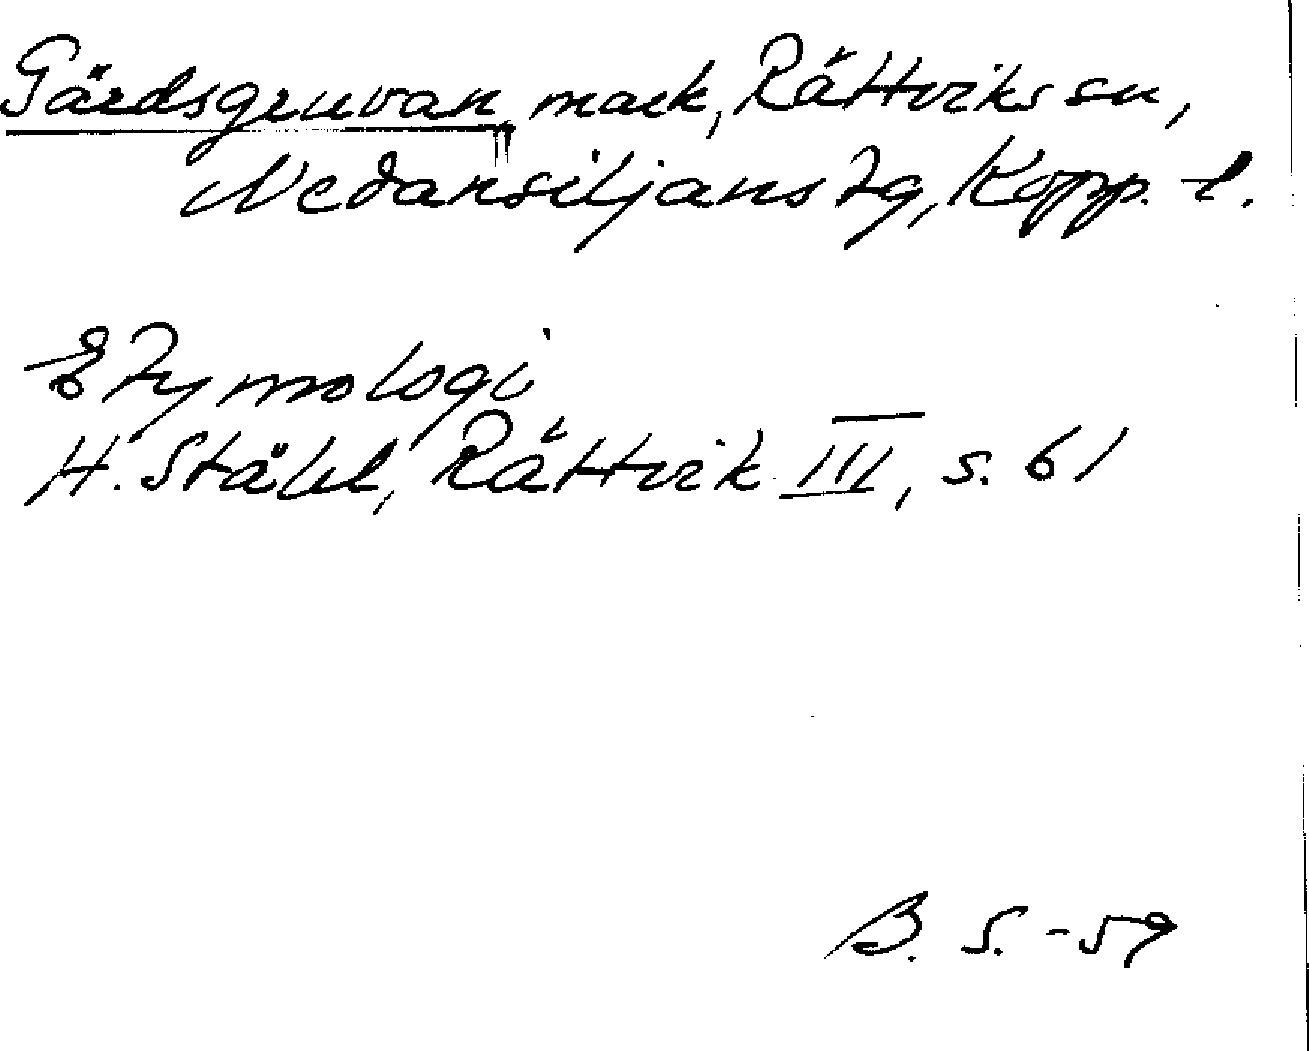 Gärdsgruvan, mark, Rättviks sn,
Nedansiljans tg, Kopp. l.
Etymologi
H. Ståhl, Rättvik III, s. 61
B. S. -59